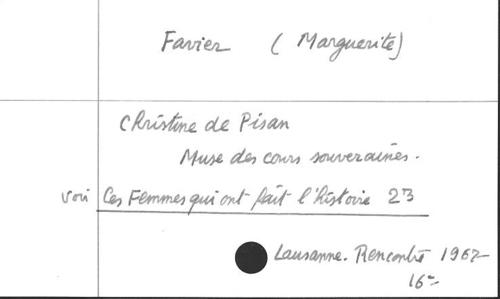 Favier (Marguerite)
Christine de Pisan
Muse des cours souveraines.
voir Ces Femmes qui ont fait l'histoire 23
Lausanne. Rencontre 1967
16°